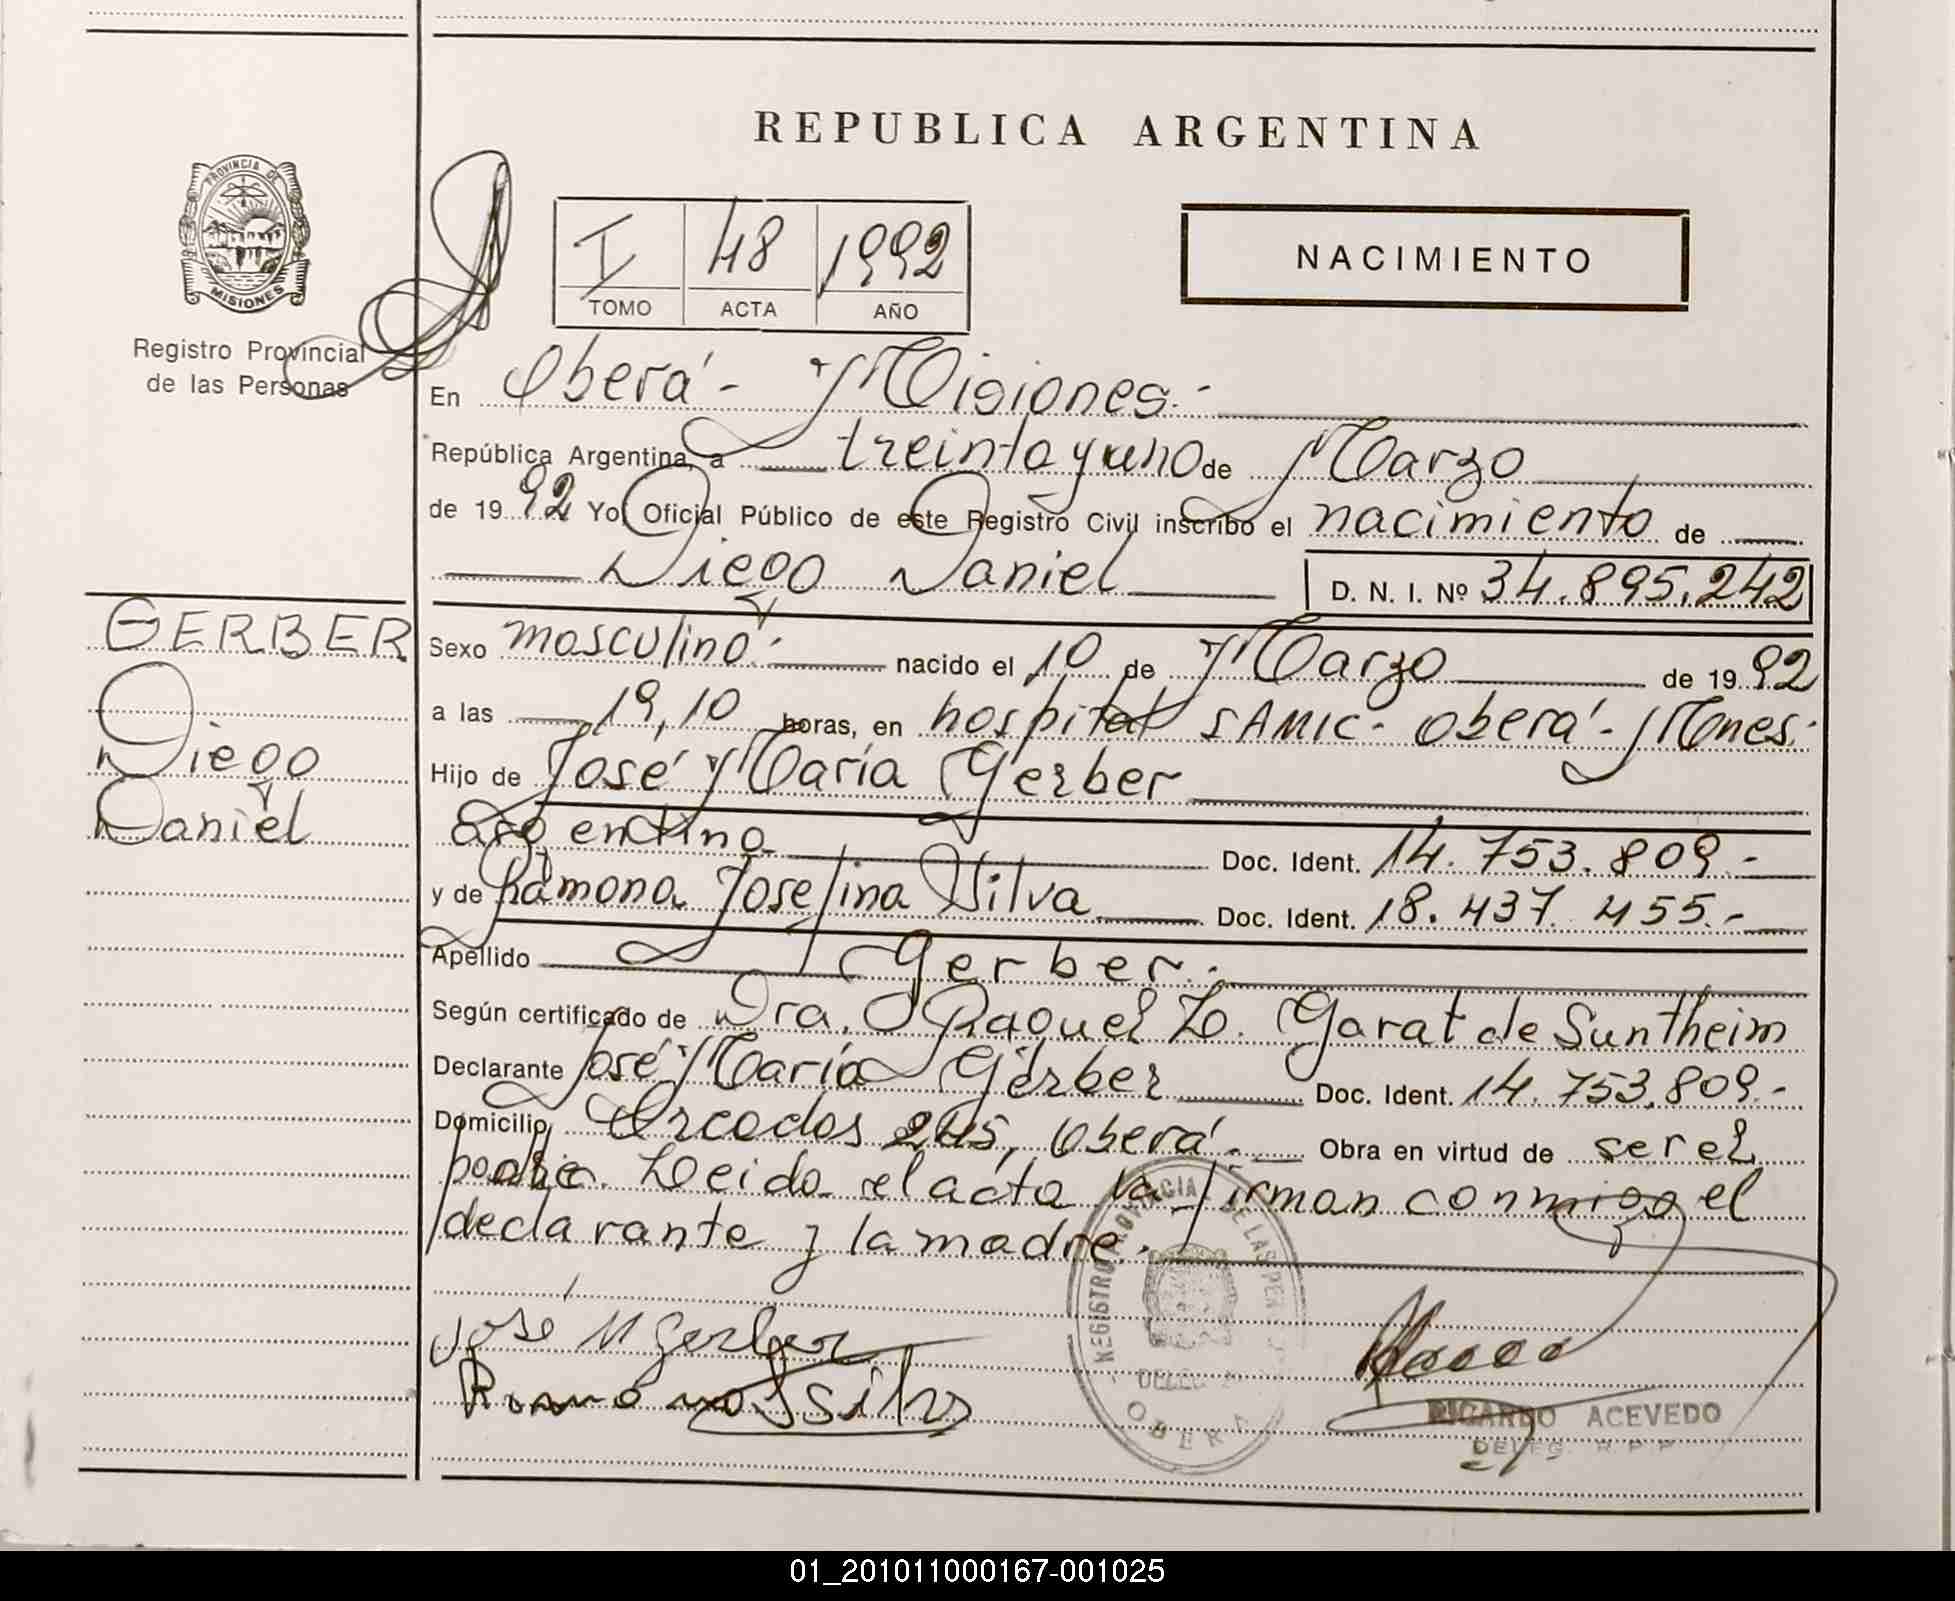 REPUBLICA ARGENTINA
PROVINCIA DE
MISIONES
Registro Provincial
de las Personas
I 48 1992
TOMO ACTA AÑO
NACIMIENTO
En Oberá - Misiones.-
República Argentina, a treinta y uno de Marzo
de 1992 Yo Oficial Público de este Registro Civil inscribo el nacimiento de
Diego Daniel D. N. I. Nº 34.895.242
GERBER
Diego
Daniel
Sexo masculino.- nacido el 10 de Marzo de 1992
a las 19,10 horas, en hospital SAMIC - Oberá - Mnes.-
Hijo de José María Gerber
argentino Doc. Ident. 14.753.809.-
y de Ramona Josefina Silva Doc. Ident. 18.437.455.-
Apellido Gerber.-
Según certificado de Dra. Raquel L. Garat de Suntheim
Declarante José María Gerber Doc. Ident. 14.753.809.-
Domicilio 245, Oberá.- Obra en virtud de ser el
padre. Leida el acta la firman conmigo el
declarante y la madre.-
José M Gerber
Ramona J Silva
REGISTRO PROVINCIAL DE LAS PER
DELEG
OBERA
RICARDO ACEVEDO
DELEG. R. P. P.
01_201011000167-001025